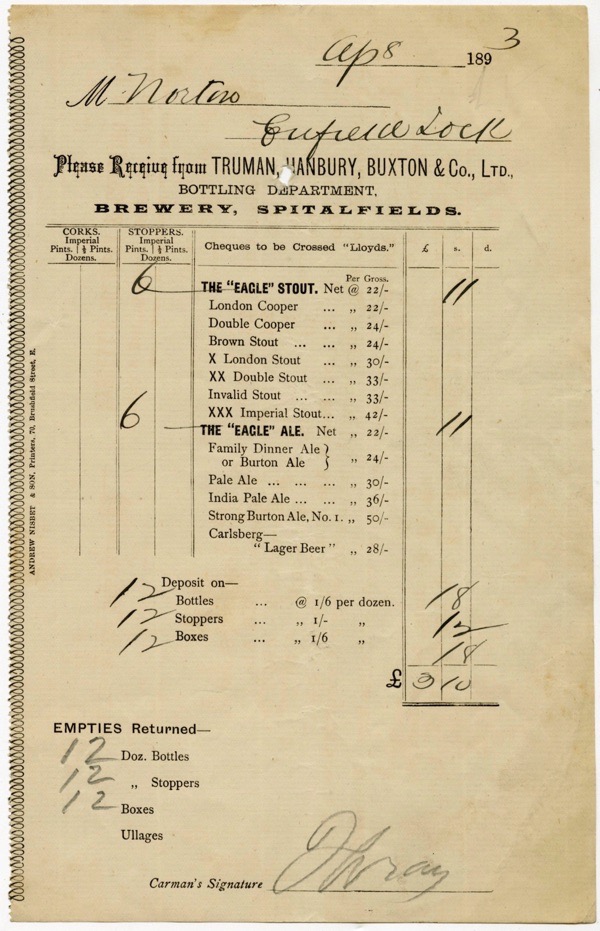 Ap 8 1893
M Norton
Enfield Lock
Please Receive from TRUMAN, HANBURY, BUXTON & Co., LTD.,
BOTTLING DEPARTMENT,
BREWERY, SPITALFIELDS.
CORKS. Imperial Pints. | ½ Pints. Dozens.
STOPPERS. Imperial Pints. | ½ Pints. Dozens.
Cheques to be Crossed "Lloyds."
£ s. d.
Per Gross.
6 THE "EAGLE" STOUT. Net @ 22/- 11
London Cooper ... „ 22/-
Double Cooper ... „ 24/-
Brown Stout ... ... „ 24/-
X London Stout ... „ 30/-
XX Double Stout ... „ 33/-
Invalid Stout ... ... „ 33/-
XXX Imperial Stout... „ 42/-
6 THE "EAGLE" ALE. Net „ 22/- 11
Family Dinner Ale }
or Burton Ale } „ 24/-
Pale Ale ... ... ... „ 30/-
India Pale Ale ... ... „ 36/-
Strong Burton Ale, No. 1. „ 50/-
Carlsberg—
"Lager Beer" „ 28/-
12 Deposit on—
Bottles ... @ 1/6 per dozen. 18
12 Stoppers ... „ 1/- „ 12
12 Boxes ... „ 1/6 „
18
£ 3 10
EMPTIES Returned—
12 Doz. Bottles
12 „ Stoppers
12 Boxes
Ullages
Carman's Signature
ANDREW NISBET & SON, Printers, 70, Brushfield Street, E.